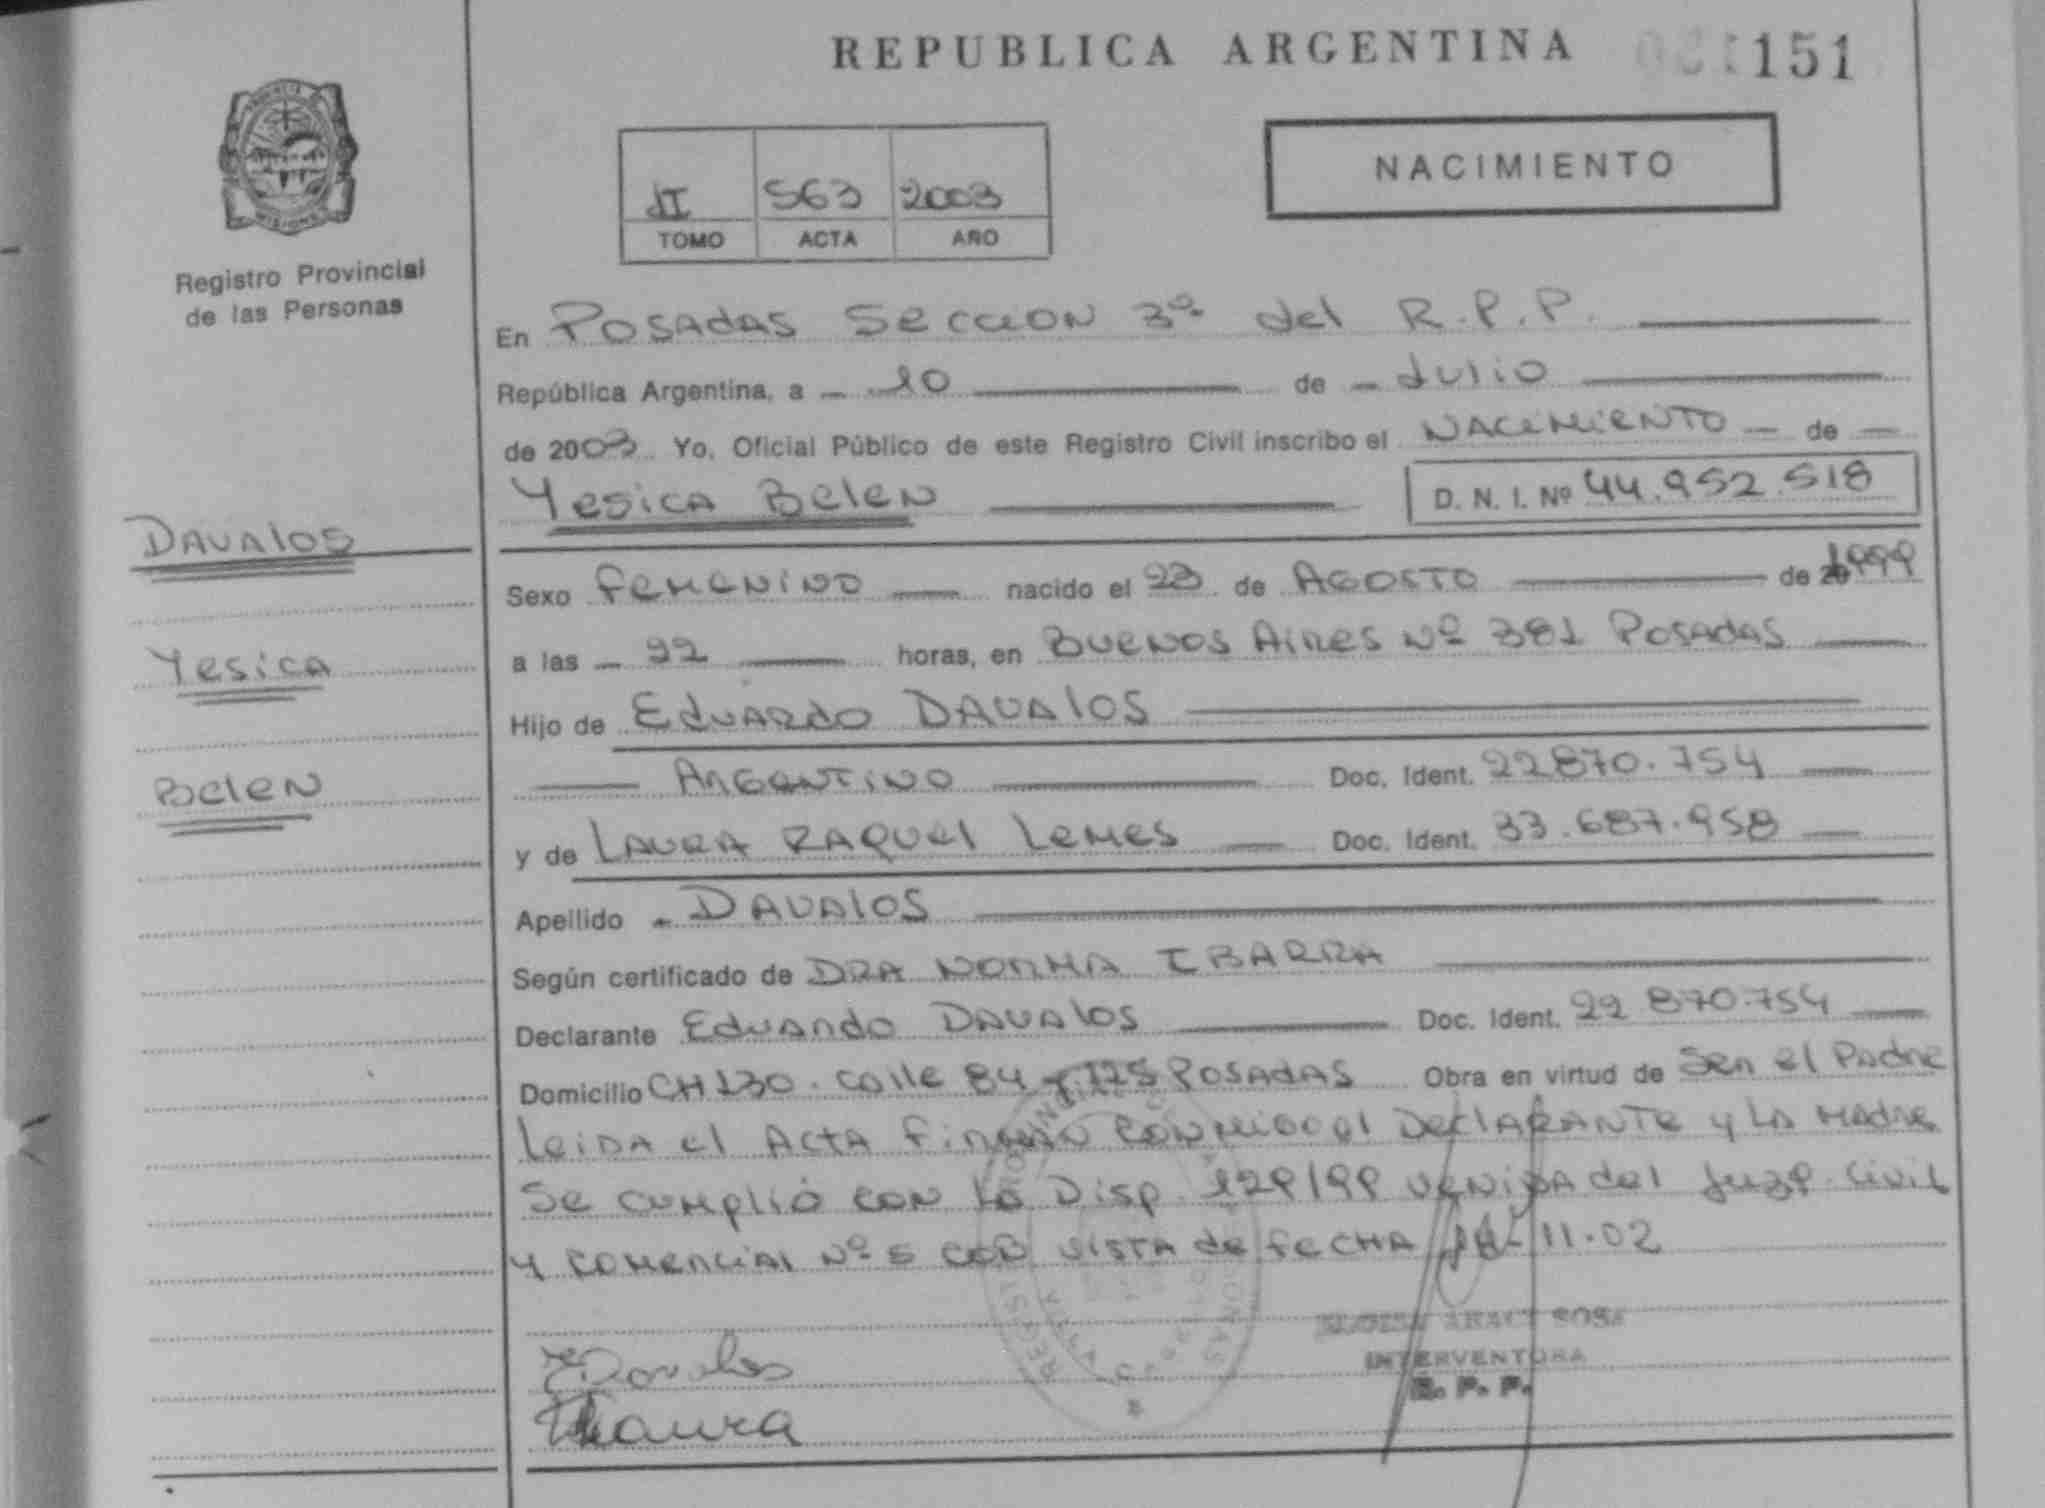 REPUBLICA ARGENTINA 151
NACIMIENTO
II 563 2003
TOMO ACTA AÑO
Registro Provincial
de las Personas
En Posadas Seccion 3º del R.P.P.
República Argentina, a 10 de Julio
de 2003 Yo, Oficial Público de este Registro Civil inscribo el Nacimiento de
Yesica Belen D. N. I. Nº 44.952.518
Davalos
Yesica
Belen
Sexo Femenino nacido el 23 de Agosto de 1999
a las 22 horas, en Buenos Aires Nº 381 Posadas
Hijo de Eduardo Davalos
Argentino Doc. Ident. 22870.754
y de Laura Raquel Lemes Doc. Ident. 33.687.958
Apellido Davalos
Según certificado de Dra Norma Ibarra
Declarante Eduardo Davalos Doc. Ident. 22 870.754
Domicilio CH 130. Calle 84 Posadas Obra en virtud de Ser el Padre
Leida el Acta firman conmigo el Declarante y la Madre
Se cumplió con la Disp. 129/99 venida del Juzg. Civil
y Comercial Nº 5 con vista de fecha 11.02
EDavalos
Laura
ARACY SOSA
INTERVENTORA
R. P. P.